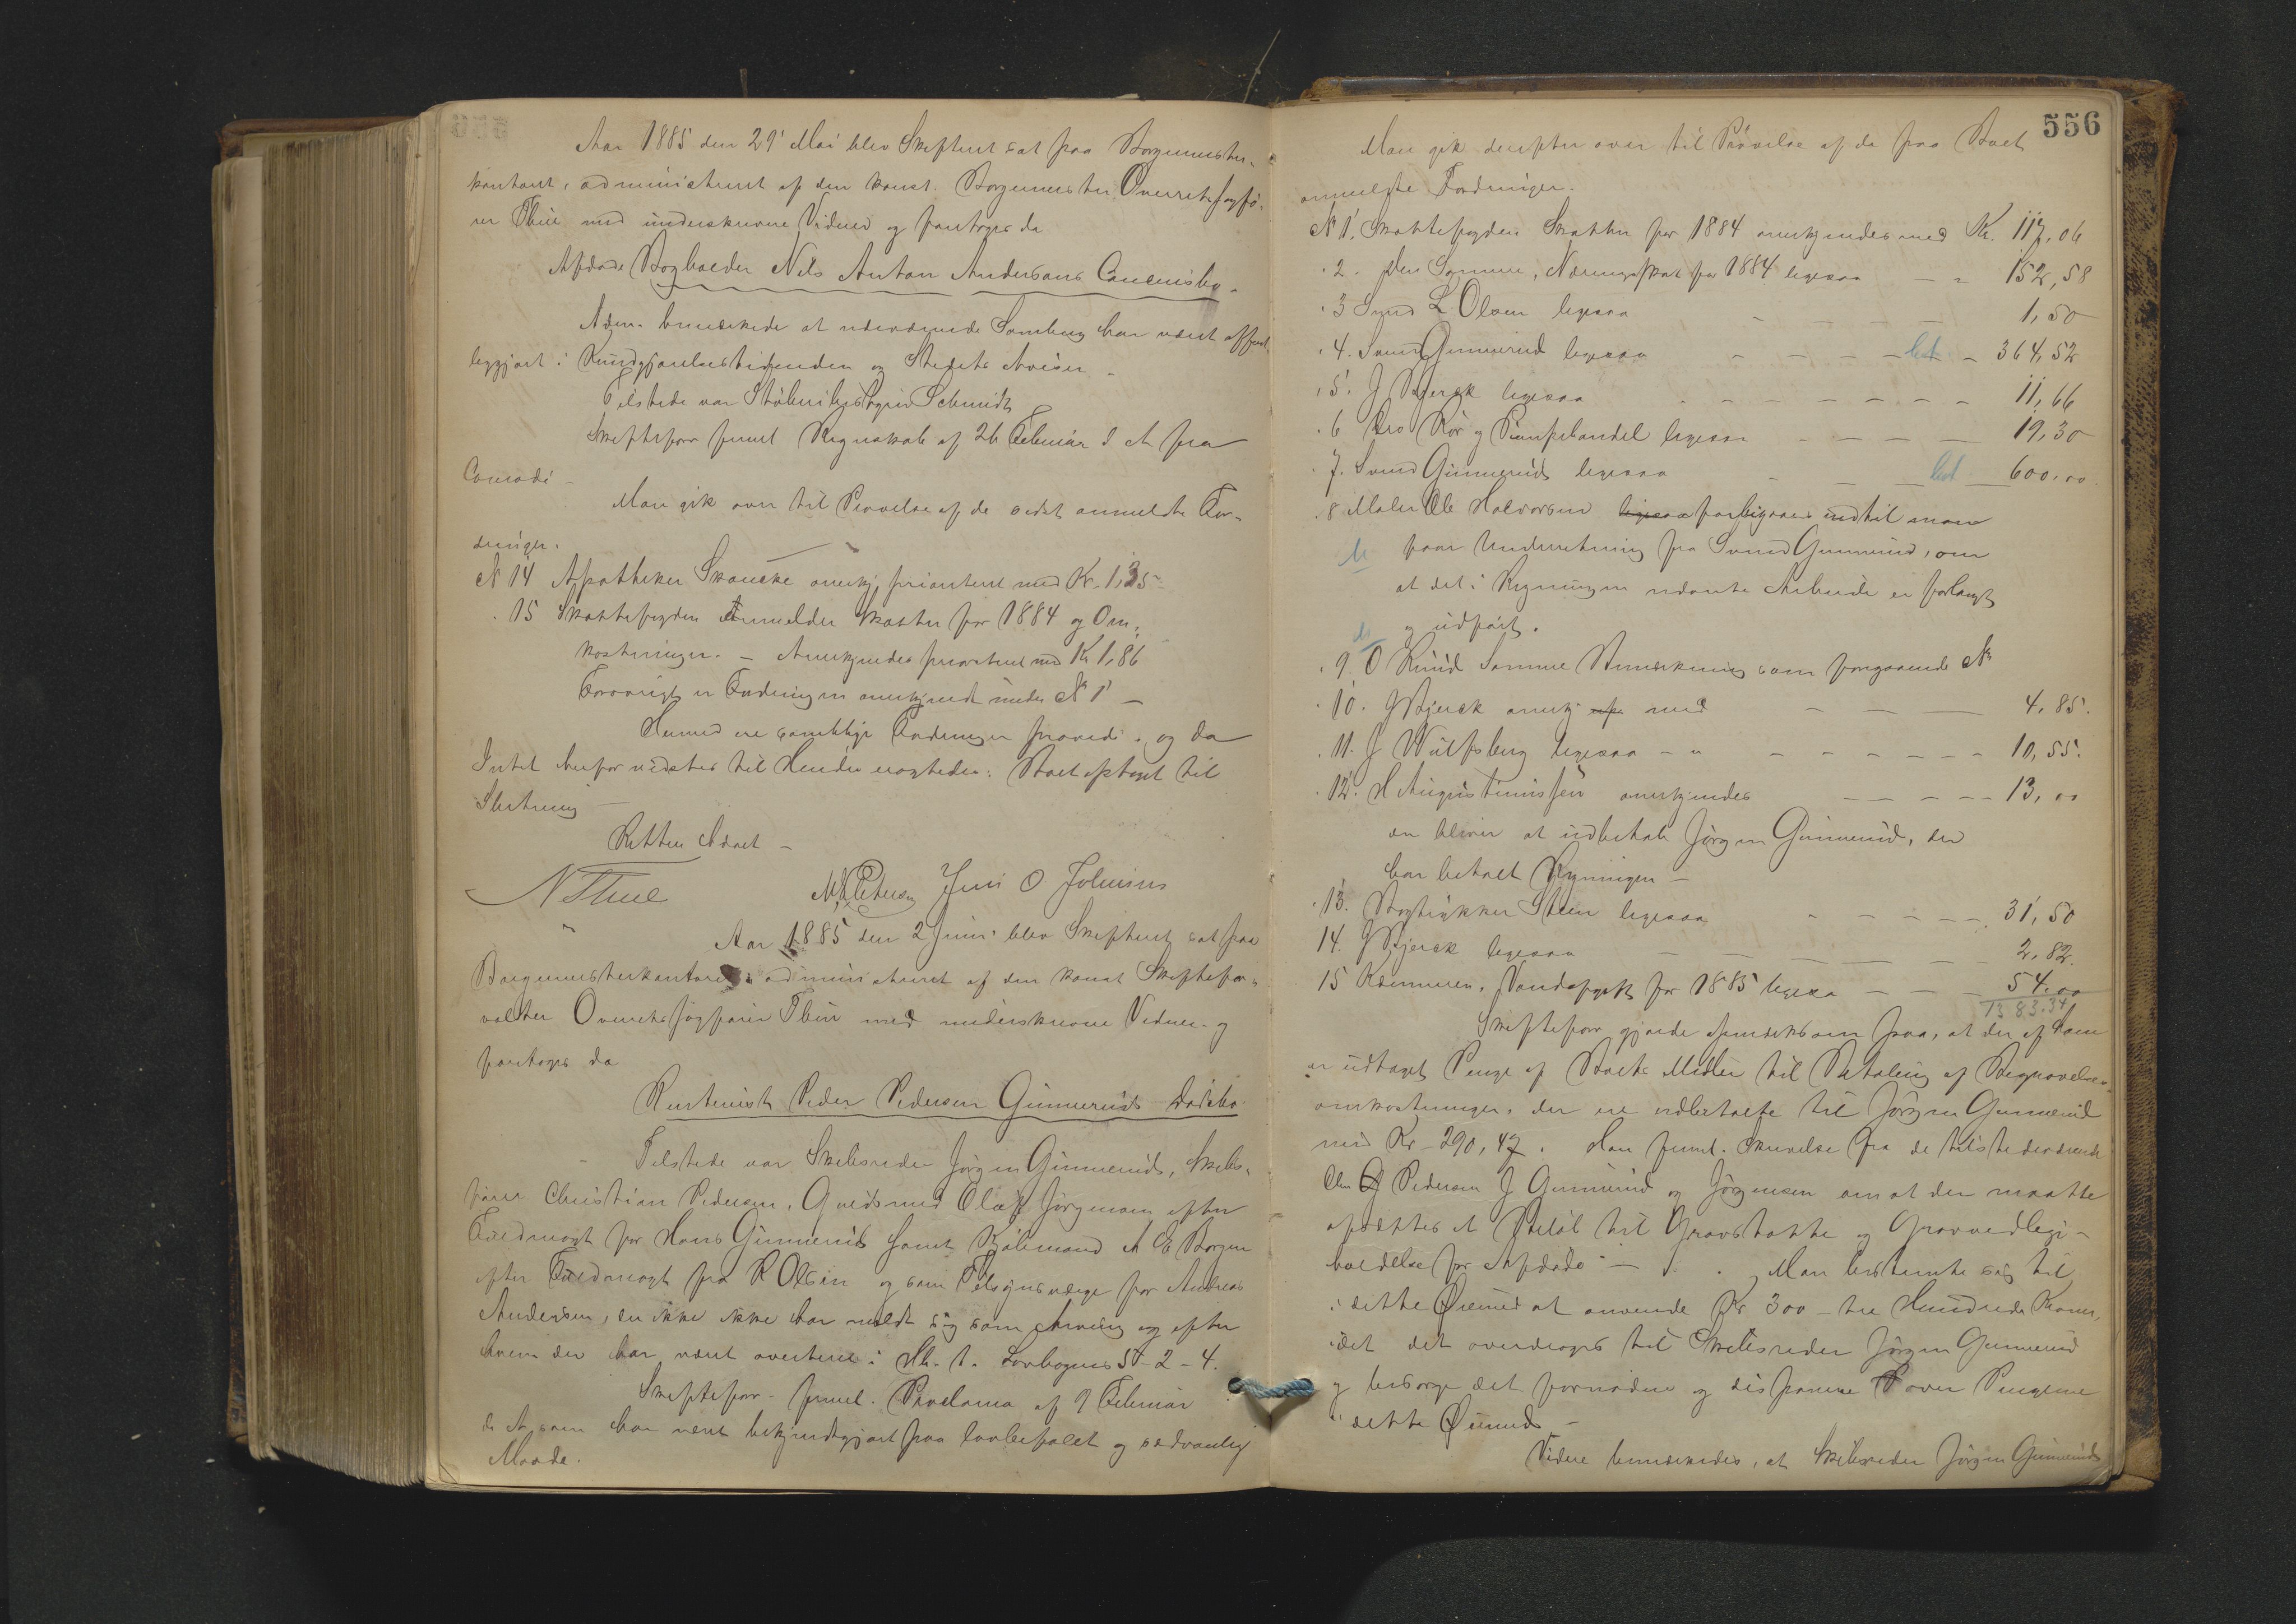 Aar 1885 den 29' Mai blev Skifteret sat paa Borgermester-
kontoret, administreret af den konst. Borgermester Overretssagfø-
rer Thiie med underskrevne Vidner og foretoges da
Afdøde Bogholder Nils Anton Andersens Concursbo.
Adm. bemærkede at nærværende Samling har været offent-
liggjort i Kundgjørelsestidenden og Stedets Aviser –
Tilstede var Schmidt
Skifteforv freml Regnskab af 26 Februar d A fra
Man gik over til Prøvelse af de sidst anmeldte For-
dringer.
N 14 Apotheker Skancke anerkj prioriteret med Kr. 1,35
. 15 Skattefogden anmelder Skatter for 1884 og Om-
kostninger. – Anerkjendes prioriteret med Kr 1,86
Forøvrigt er Fordringen anerkjendt under N 1' –
Hermed ere samtlige Fordringer prøvede. og da
Intet herfor vidstes til Hinder Boet optaget til
Slutning –
Retten hævet –
N Thiie Petersen Jens O Johnsens
Aar 1885 den 2 Juni blev Skifteret sat paa
Borgermesterkontoret administreret af den konst Skiftefor-
valter Overretssagfører Thiie med underskrevne Vidner og
foretoges da
Rentenist Peder Pedersen Gunnerud Dødsbo
– Tilstede var Skibsreder Jørgen Gunnerud, Skibs-
fører Christian Pedersen, Guldsmed Olaf Jørgensen efter
Fuldmagt for Hans Gunnerud samt A E Borgen
efter Fuldmagt fra R Olsen og som Tilsynsværge for Andreas
Andersen, der ikke ikke har meldt sig som Arving og efter
hvem der har været i Lovbogens 5 – 2 – 4.
Skifteforv. freml. Proclama af 9 Februar
d A, som har været bekjendtgjort paa lovbefalet og sædvanlig
Maade.
556
Man gik derefter over til Prøvelse af de paa Boet
anmeldte Fordringer.
N 1'. Skattefogden Skatter for 1884 anerkjendes med Kr. 117,06
. 2. Den Samme, Næringsskat for 1884 ligesaa – " 152,58
. 3 Svend L Olsen ligesaa – – – – 1,50
. 4. Svend Gunnerud ligesaa – – – – bet – 364,52
. 5'. J Bjerck ligesaa – – – – – – – 11,66
. 6 Rør og Pumpehandel ligesaa – – – – 19,30
. 7. Svend Gunnerud ligesaa – – – bet – 600.00.
. 8 Maler Ole Halvorsen ligesaa forbigaaes indtil man
faar Underretning fra Svend Gunnerud, om
at det i Regningen nævnte Arbeide er forlangt
og udført.
. 9. O Ruud Samme Bemærkning som foregaaende N
. 10. J Bjerck anerkj med – – – 4,85.
. 11. J Wulfsberg ligesaa – " – – – – – 10,55.
. 12. H Augustinussen anerkjendes – – – – – 13,00
en bliver at udbetale Jørgen Gunnerud, der
har betalt Regningen –
. 13. Bogtrykker Steen ligesaa – – – – – 31,50
14. J Bjerck ligesaa – – – – – – 2,82.
15 Kæmneren, Vandafgift for 1885 ligesaa – – – 54.00
1383.34
Skifteforv gjorde opmærksom paa, at der af ham
er udtaget Penge af Boets Midler til Betaling af Begravelses-
omkostninger, der ere udbetalte til Jørgen Gunnerud
med Kr – 290,47. Han freml. Skrivelse fra de tilstedeværende
Chr Pedersen J Gunnerud og Jørgensen om at der maatte
afsættes et Beløb til Gravstøtte og Gravvedlige-
holdelse for Afdøde – . Man bestemte sig til
i dette Øiemed at anvende Kr 300 – tre Hundrede Kroner,
idet det overdroges til Skibsreder Jørgen Gunnerud
og besørge det fornødne og disponere over Pengene
i dette Øiemed –
Videre bemærkedes, at Skibsreder Jørgen Gunnerud